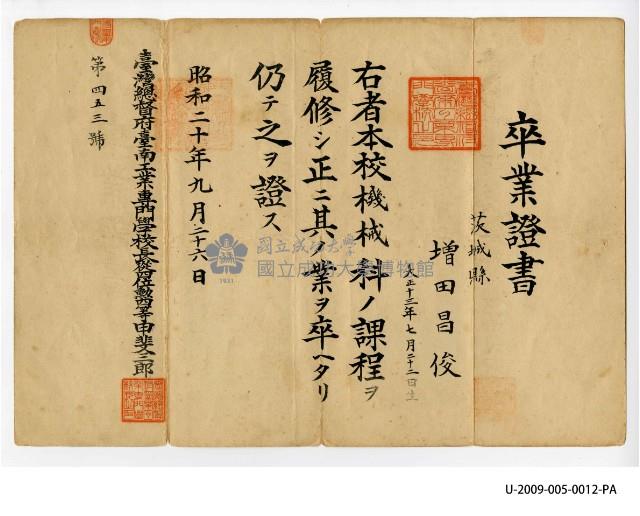 卒業證書
茨城縣
增田昌俊
大正十三年七月二十二日生
右者本校機械科ノ課程ヲ
履修シ正ニ其ノ業ヲ卒ヘタリ
仍テ之ヲ證ス
昭和二十年九月二十六日
臺灣總督府臺南工業專門學校長從四位勳三等甲斐三郎
第四五三號
國立成功大學
國立成功大學博物館
1931
U-2009-005-0012-PA